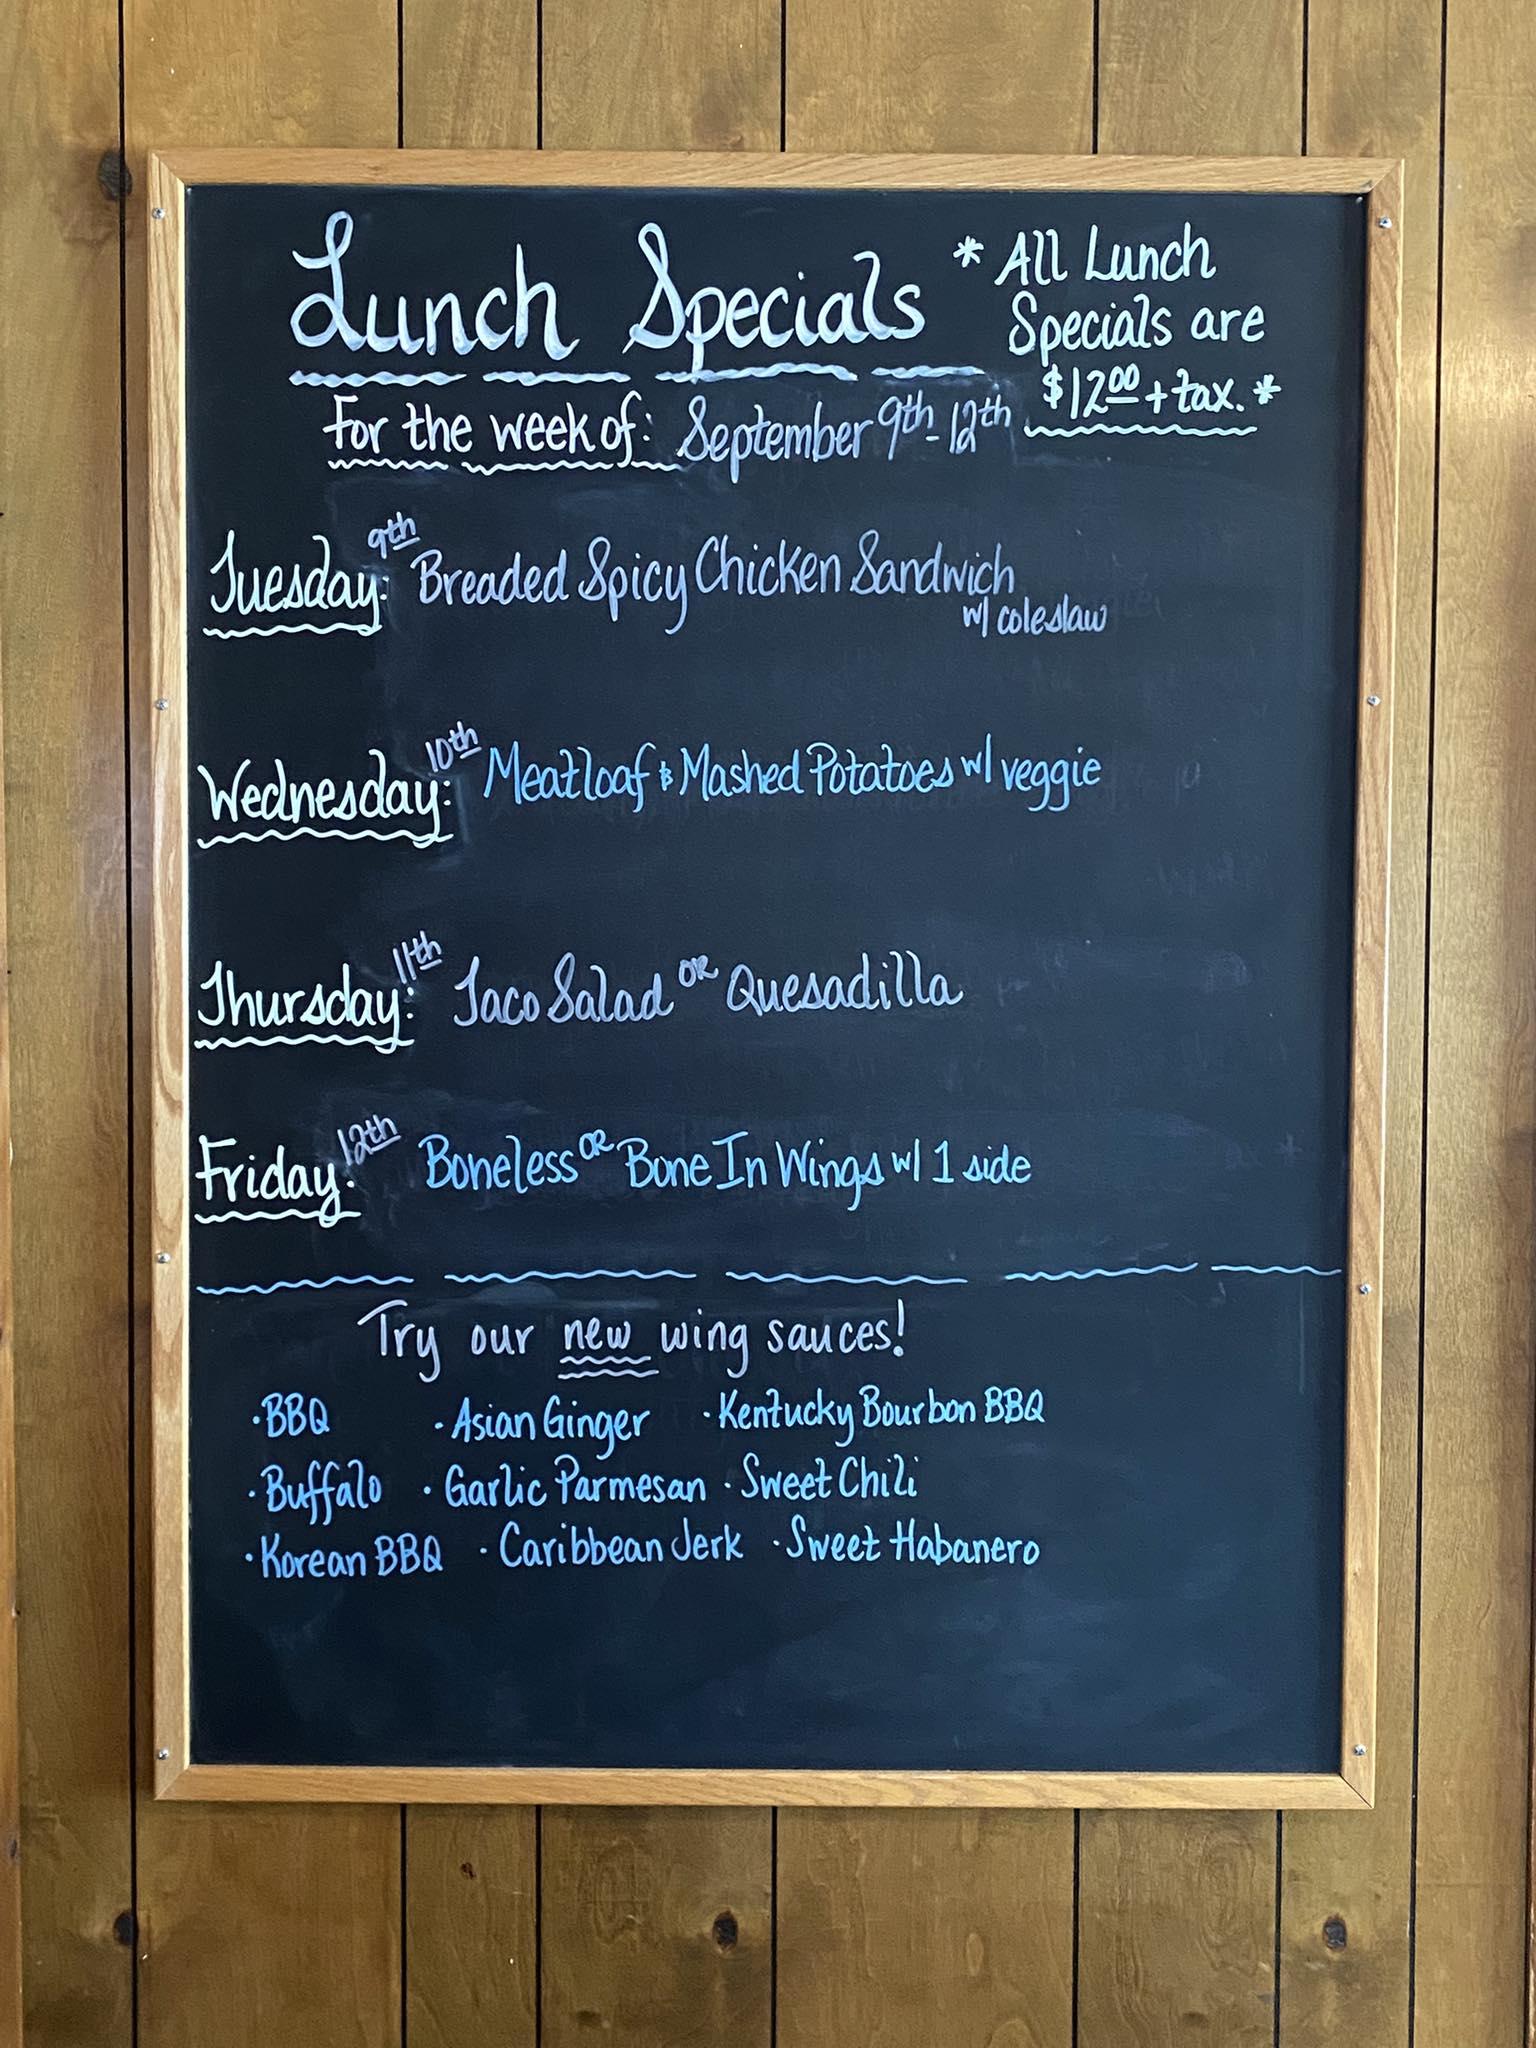 Lunch Specials
* All Lunch
Specials are
$12.00 + tax. *
For the week of: September 9th-12th
Tuesday: 9th Breaded Spicy Chicken Sandwich
w/ coleslaw
Wednesday: 10th Meatloaf & Mashed Potatoes w/ veggie
Thursday: 11th Taco Salad OR Quesadilla
Friday: 12th Boneless OR Bone In Wings w/ 1 side
Try our new wing sauces!
· BBQ · Asian Ginger · Kentucky Bourbon BBQ
· Buffalo · Garlic Parmesan · Sweet Chili
· Korean BBQ · Caribbean Jerk · Sweet Habanero